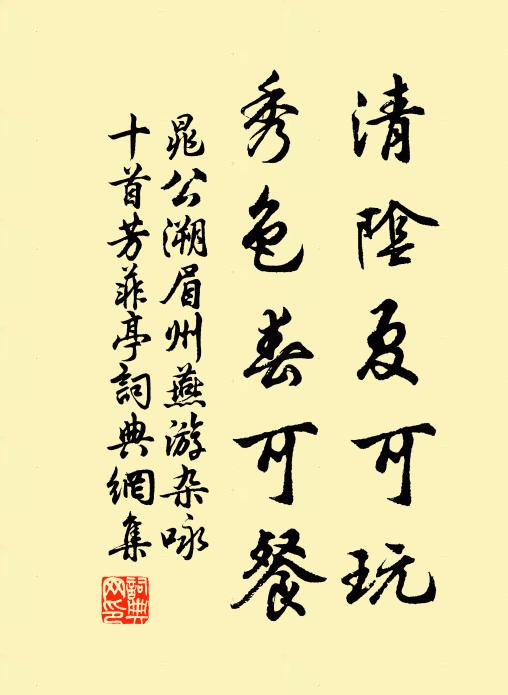 清陰夏可玩
秀色春可餐
晁公溯眉州燕游杂咏
十首芳菲亭詞典網集
詞典网印